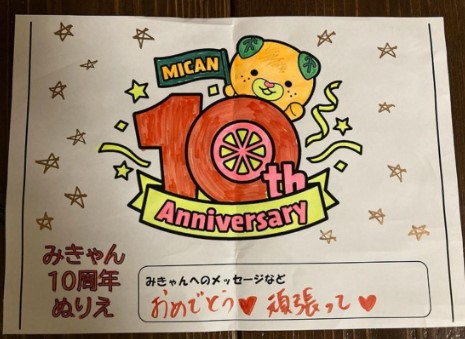 MICAN
10th
Anniversary
みきゃん
10周年
ぬりえ
みきゃんへのメッセージなど
おめでとう♥ 頑張って♥